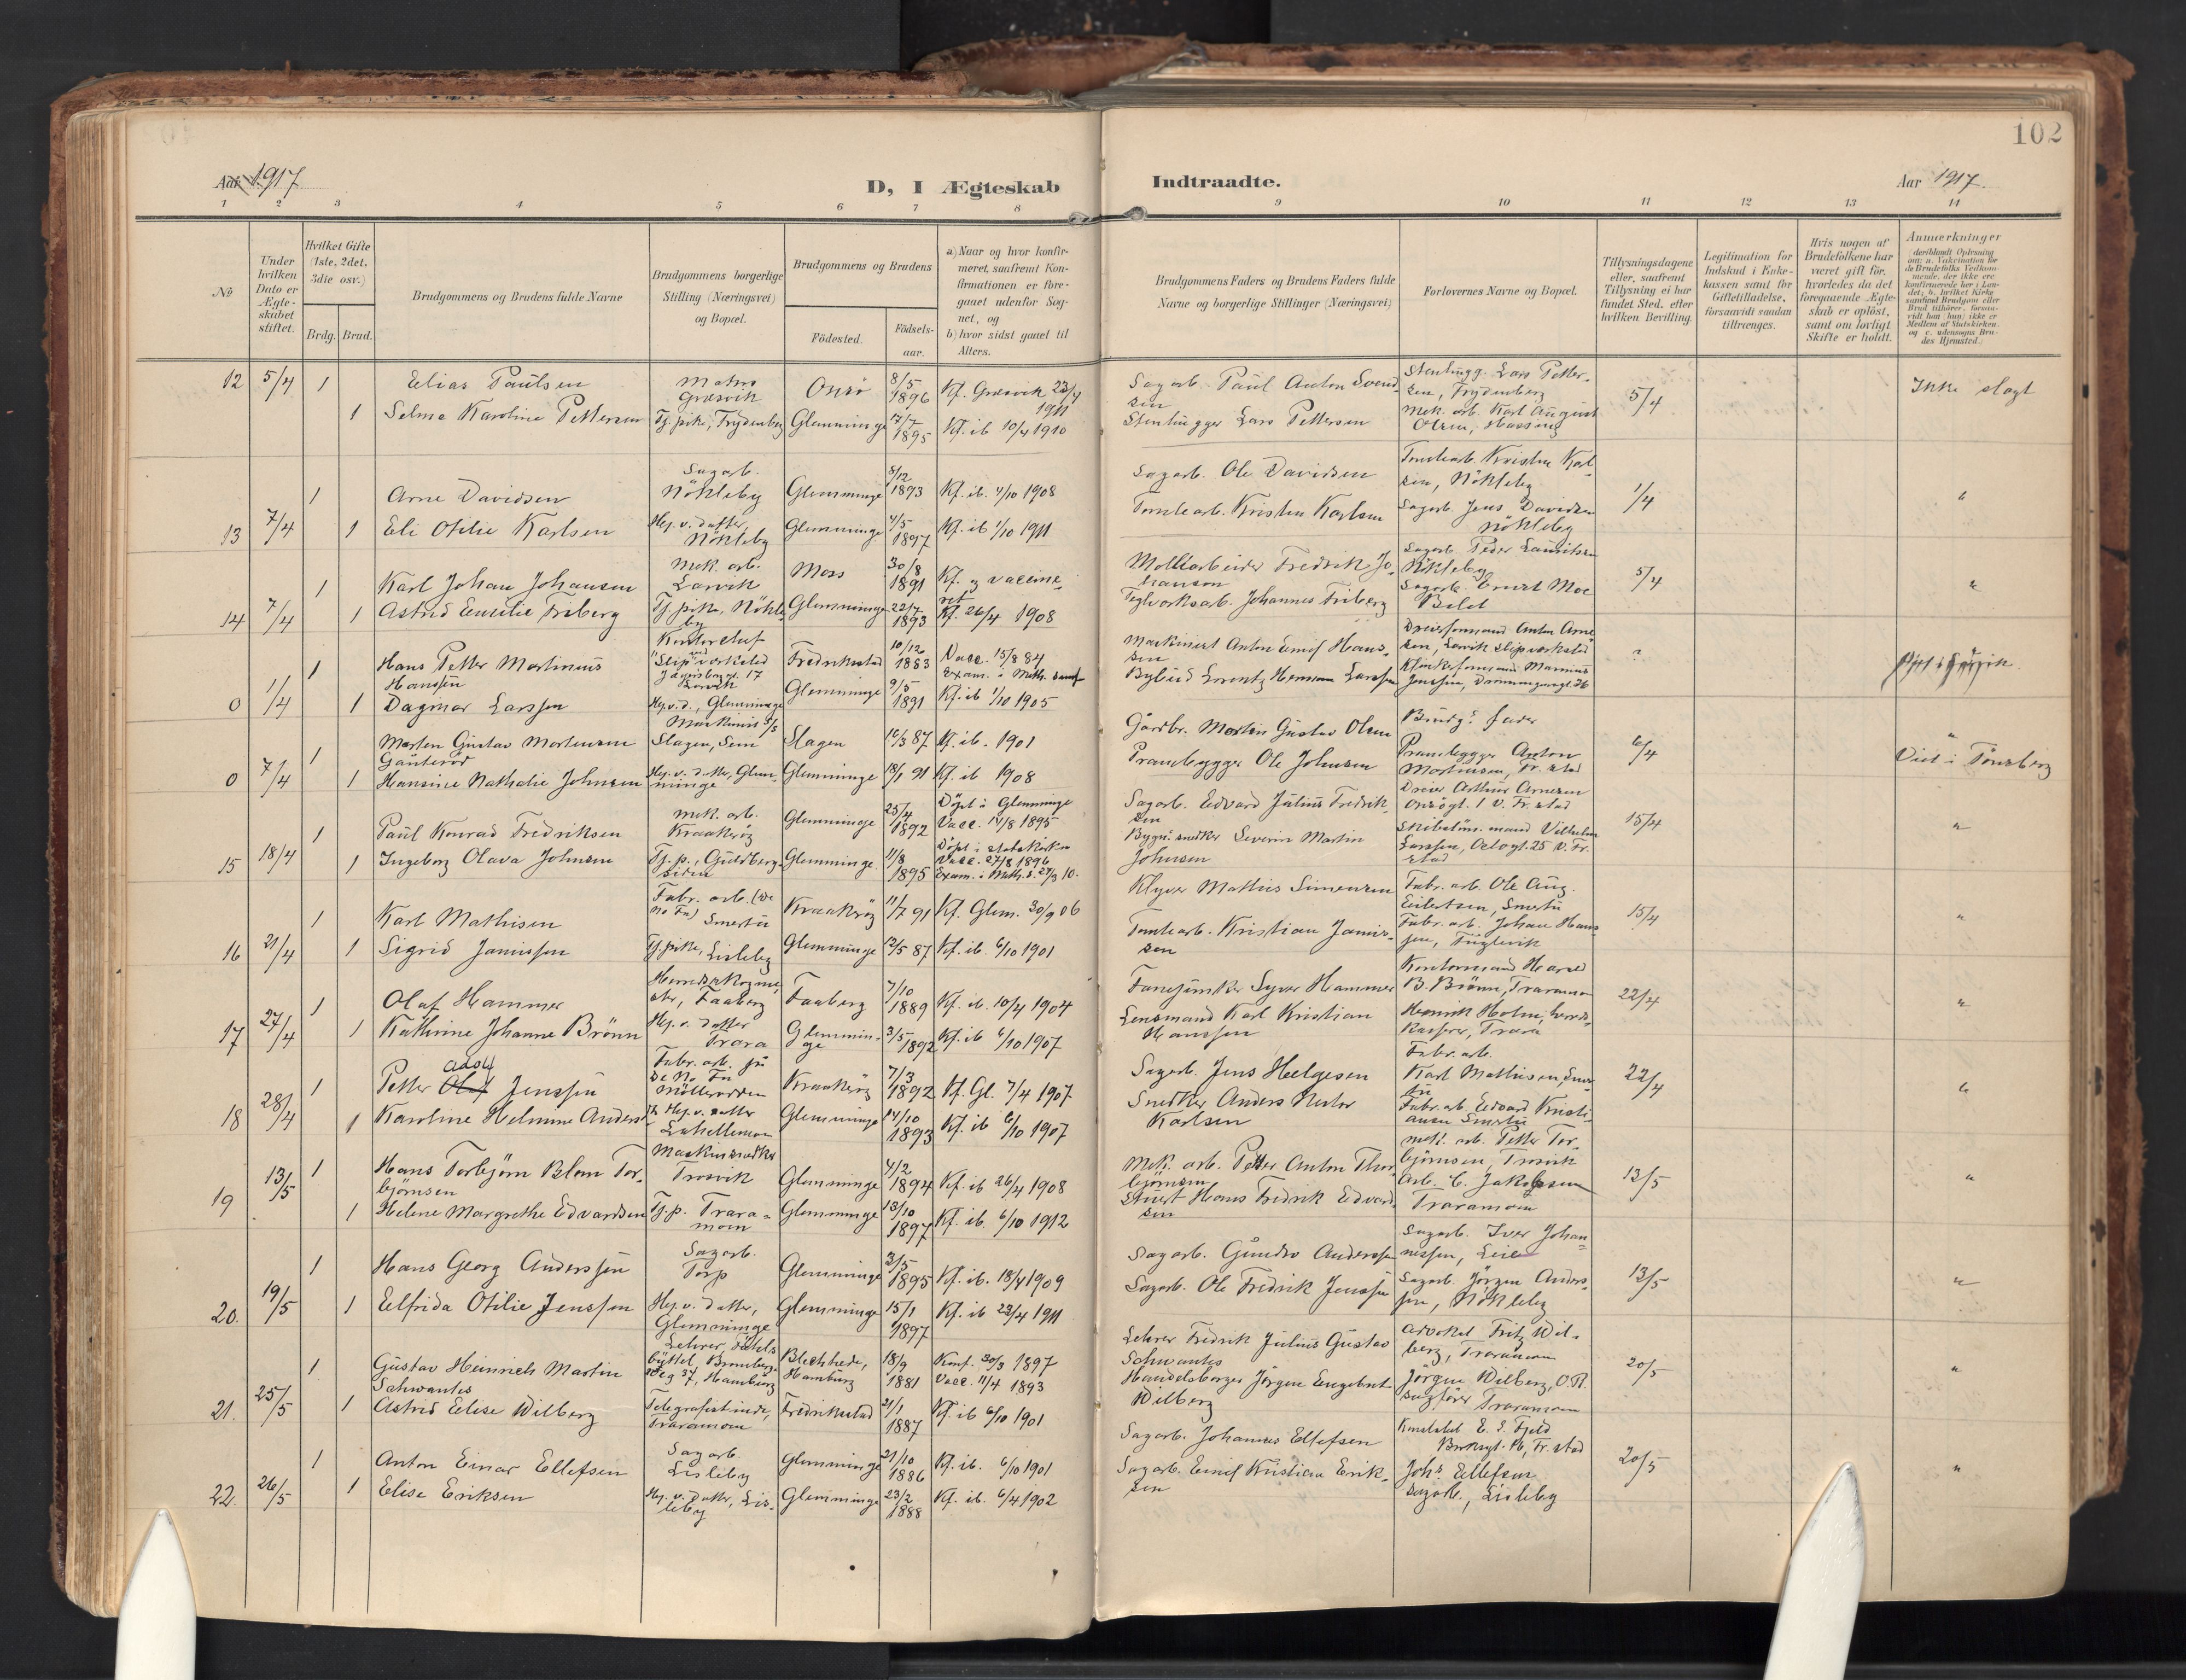 102
Aar 1917
D, I Ægteskab
Indtraadte.
Aar 1917.
1 2 3 4 5 6 7 8 9 10 11 12 13 14
No
Under hvilken Dato er Ægteskabet stiftet.
Hvilket Gifte (1ste, 2det, 3die osv.)
Brdg. Brud.
Brudgommens og Brudens fulde Navne
Brudgommens borgerlige Stilling (Næringsvei) og Bopæl.
Brudgommens og Brudens
Fødested.
Fødselsaar.
a) Naar og hvor konfirmeret, saafremt Konfirmationen er foregaaet udenfor Sognet, og
b) hvor sidst gaaet til Alters.
Brudgommens Faders og Brudens Faders fulde Navne og borgerlige Stillinger (Næringsvei)
Forlovernes Navne og Bopæl.
Tillysningsdagene eller, saafremt Tillysning ei har fundet Sted, efter hvilken Bevilling.
Legitimation for Indskud i Enkekassen samt for Giftetilladelse, forsaavidt saadan tiltrænges.
Hvis nogen af Brudefolkene har været gift før, hvorledes da det foregaaende Ægteskab er opløst, samt om lovligt Skifte er holdt.
Anmerkninger
12 5/4 1 Elias Paulsen Matros Græsvik Onsö 8/5 1896 Kf. Græsvik 23/4 1911 Sagarb. Paul Anton Svendsen Stenhugg. Lars Pettersen, Frydenberg 5/4 Ikke slegt
1 Selma Karoline Pettersen Tj. pike, Frydenberg Glemminge 7/7 1895 Kf. ib 10/4 1910 Stenhugger Lars Pettersen Mek. arb. Karl August Olsen, Hassing
1 Arne Davidsen Sagarb. Nökleby Glemminge 5/12 1893 Kf. ib. 4/10 1908 Sagarb. Ole Davidsen Tomtearb. Kristen Karlsen, Nökleby 1/4 "
13 7/4 1 Eli Otilie Karlsen Hj. v. datter, Nökleby Glemminge 4/5 1897 Kf. ib 1/10 1911 Tomtearb. Kristen Karlsen Sagarb. Jens Davidsen Nökleby
1 Karl Johan Johansen Mek. arb. Larvik Moss 30/8 1891 Kf. og vaccineret Fredrik Johansen Sagarb. Peder Lauritsen Nökleby 5/4 "
14 7/4 1 Astrid Emilie Friberg Tj. pike, Nökleby Glemminge 22/7 1893 Kf. 26/4 1908 Teglverksarb. Johannes Friberg Sagarb. Ernst Moe
1 Hans Petter Martinius Hanssen Kontorchef ved Slipverksted 17 Larvik Fredrikstad 10/12 1883 Vacc. 15/8 84 Exam. i Meth. samf Maskinist Anton Emil Hanssen Dreierformand Anton Arnesen, Larvik slipverksted ?
0 1/4 1 Dagmar Larssen Hj. v. d., Glemminge Glemminge 9/5 1891 Kf. ib 1/10 1905 Bybud Lorentz Herman Larssen Marinius Jenssen, Dronningensgt. 36
1 Morten Gustav Mortensen Gauterød Maskinist Slagen, Sem Slagen 16/3 87 Kf. ib. 1901 Gårdbr. Morten Gustav Olsen Brudg.s fader 6/4 "
0 7/4 1 Hansine Nathalie Johnsen Hj. v. datter, Glemminge Glemminge 18/1 91 Kf. ib 1908 Prambygger Ole Johnsen Prambygger Anton Mortensen, Fr. stad Viet i Tönsberg
1 Paul Konrad Fredriksen mek. arb. Kraakeröy Glemminge 25/4 1892 Döpt i Glemminge Vacc. 14/8 1895 Sagarb. Edvard Julius Fredriksen Dreier Arthur Arnesen Onsögt. 1 v. Fr. stad 15/4 "
15 18/4 1 Ingeborg Olava Johnsen Tj. p., Gudebergsiden Glemminge 11/8 1895 Döpt i statskirken Vacc. 27/8 1896 Exam. i Meth. s. 27/3 10. Bygn. snedker Severin Martin Johnsen Vilhelm Larssen, 25 v. Fr. stad
1 Karl Mathisen Fabr. arb. (De No Fa) Smertu Kraakeröy 11/7 91 Kf. Glem. 30/9 06 Klyver Mathis Simensen Fabr. arb. Ole Aug. Eilertsen, Smertu 15/4 "
16 21/4 1 Sigrid Jamissen Tj. pike, Lisleby Glemminge 12/5 87 Kf. ib. 6/10 1901 Tomtearb. Kristian Jamissen Fabr. arb. Johan Hanssen, Fuglevik
1 Olaf Hammer Herredsagronom, Faaberg Faaberg 7/10 1889 Kf. ib. 10/4 1904 Fanejunker Syver Hammer Kontormand Harald B. Brönn, Traramoen 22/4 "
17 27/4 1 Kathrine Johanne Brönn Hj. v. datter Trara Glemminge 3/5 1892 Kf. ib 6/10 1907 Lensmand Karl Kristian Hanssen Henrik Holm, herredskasserer, Trara
1 Petter Adolf Jenssen Fabr. arb. på De No Fa Möllerodden Kraakeröy 7/3 1892 Kf. Gl. 7/4 1907 Sagarb. Jens Helgesen Fabr. arb. Karl Mathisen, Smertu 22/4 "
18 28/4 1 Karoline Helmine Anders Hj. v. datter Labellemoen Glemminge 14/10 1893 Kf. ib 6/10 1907 Snedker Anders Nestor Karlsen Fabr. arb. Edvard Kristiansen Smertu
19 13/5 1 Hans Torbjørn Blom Torbjörnsen Maskinsnedker Trosvik Glemminge 4/2 1894 Kf. ib 26/4 1908 Mek. arb. Petter Anton Thorbjörnsen mek. arb. Petter Torbjörnsen, Trosvik 13/5 "
1 Helene Margrethe Edvardsen Tj. p. Traramoen Glemminge 13/10 1897 Kf. ib. 6/10 1912 Stuert Hans Fredrik Edvardsen Arb. C. Jakobsen Traramoen
1 Hans Georg Anderssen Sagarb. Torp Glemminge 3/5 1895 Kf. ib. 18/4 1909 Sagarb. Gundro Anderssen Sagarb. Iver Johannessen, Leie 13/5 "
20. 19/5 1 Elfrida Otilie Jenssen Hj. v. datter, Glemminge Glemminge 15/1 1897 Kf. ib 23/4 1911 Sagarb. Ole Fredrik Jenssen Sagarb. Jörgen Anderssen, Nökleby
1 Gustav Heinrich Martin Schwantes Lehrer, Fuhlsbüttel, 37, Hamburg Bleckhede, Hamburg 18/9 1881 Konf. 30/3 1897 Vacc. 11/4 1893 Lehrer Fredrik Julius Gustav Schwantes Advokat Fritz Wilberg, Traramoen 20/5 "
21. 25/5 1 Astrid Elise Wilberg Telegrafistinde, Traramoen Fredrikstad 21/1 1887 Kf. ib 6/10 1901 Handelsborger Jörgen Engebret Wilberg Jörgen Wilberg, O.R. sagförer Traramoen
1 Anton Einar Ellefsen Sagarb. Lisleby Glemminge 21/10 1886 Kf. ib. 6/10 1901 Sagarb. Johannes Ellefsen Konstabel E. S. Fjeld Fr. stad 20/5 "
22. 26/5 1 Elise Eriksen Hj. v. datter, Lisleby Glemminge 23/2 1888 Kf. ib. 6/4 1902 Sagarb. Emil Kristian Eriksen Johs. Ellefsen sagarb., Lisleby